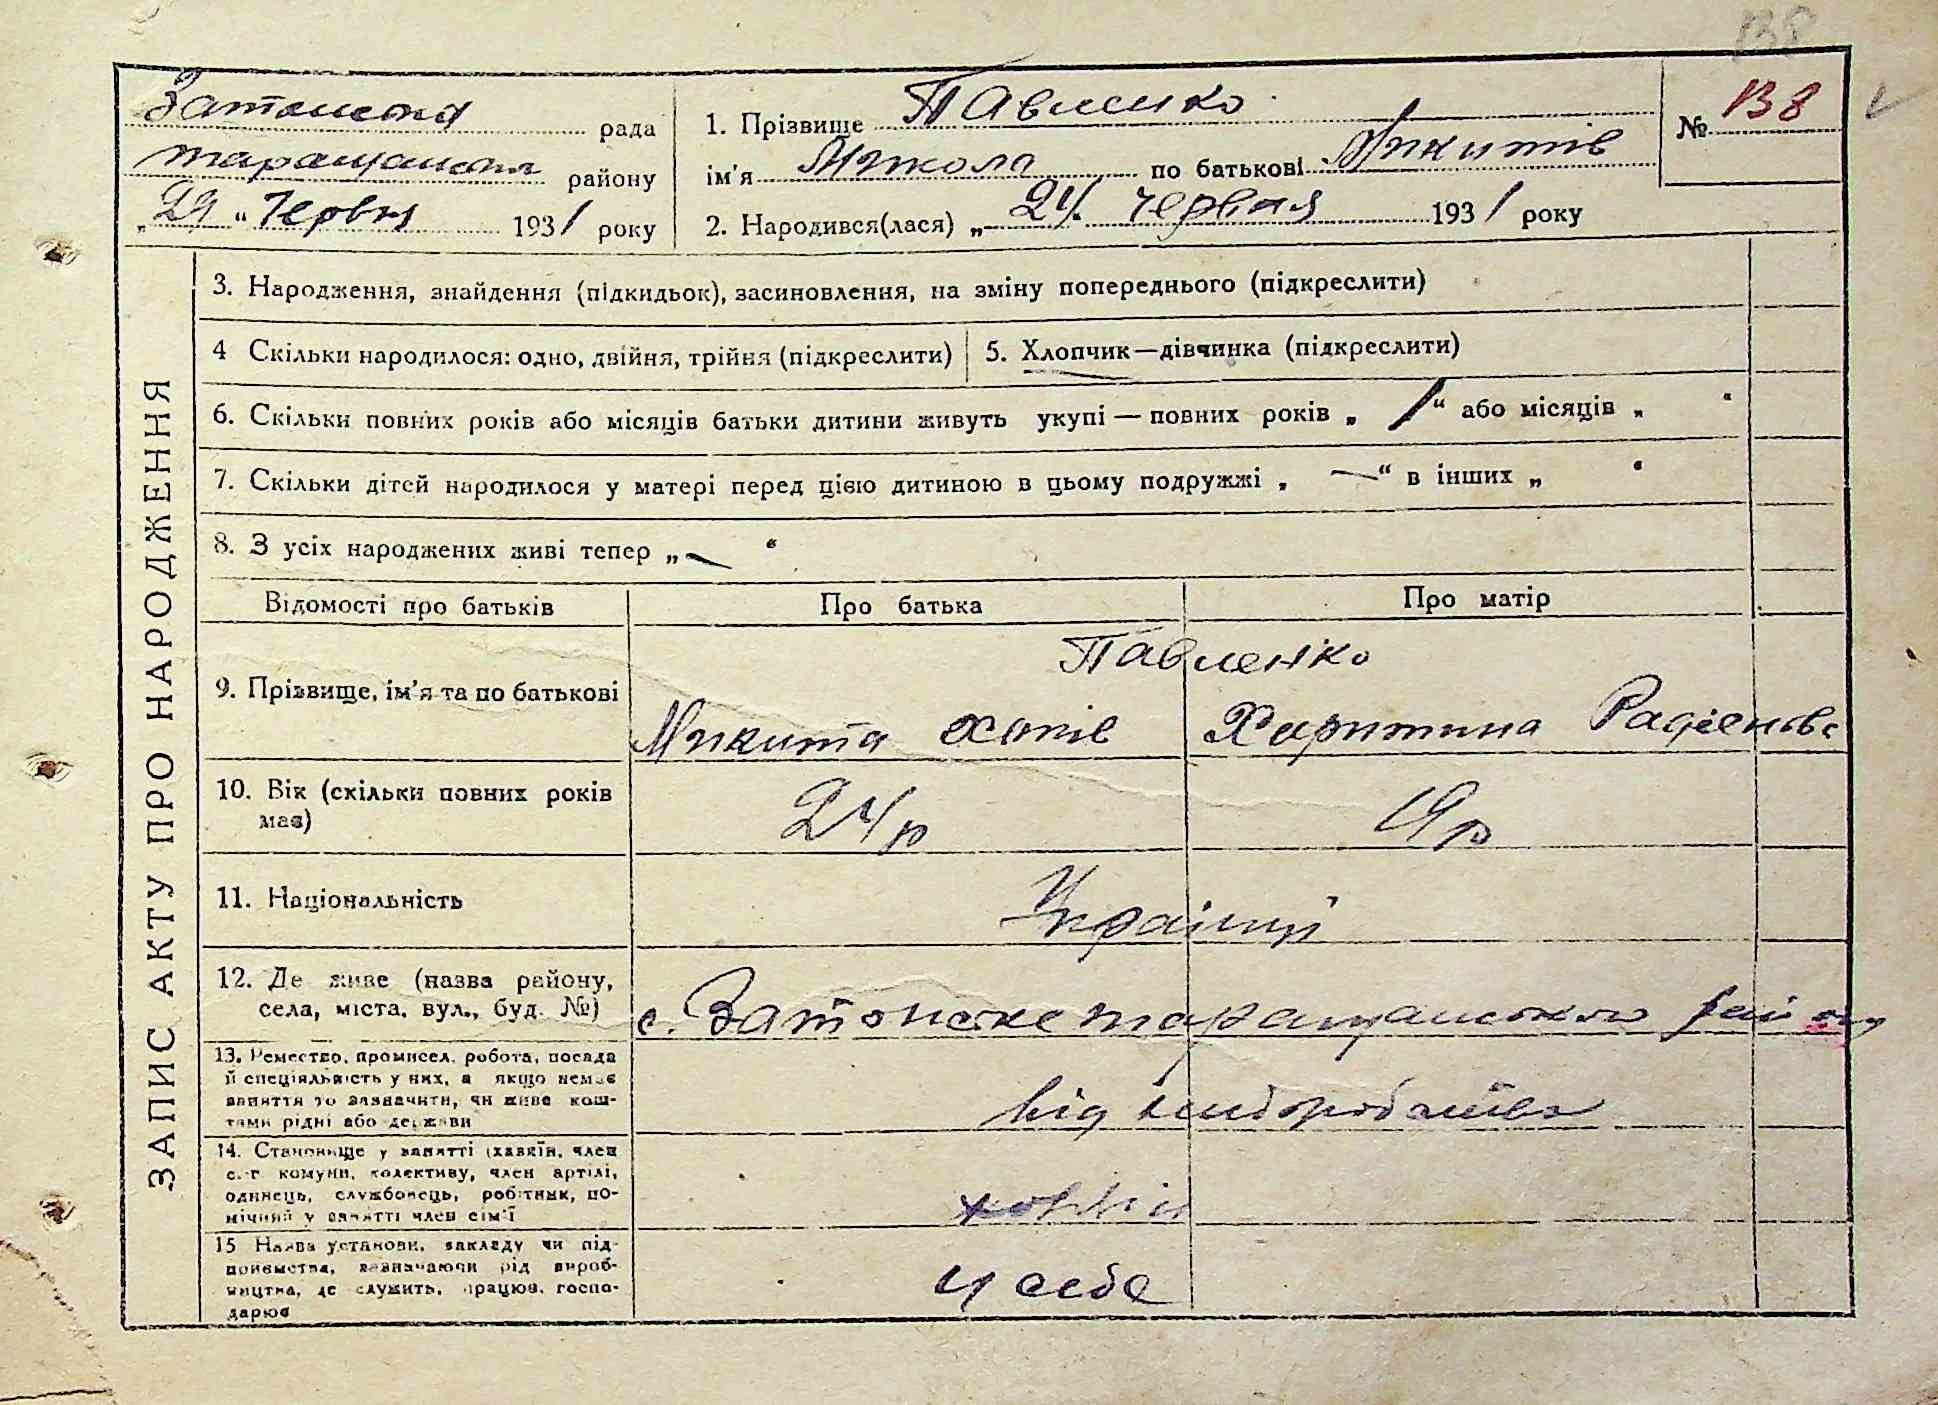 138
Затонська рада
таращанськ району
„29“ Червня 1931 року
1. Прізвище Павленко
ім'я Микола по батькові Микитів
2. Народився(лася) „24“ червня 1931 року
№ 138
ЗАПИС АКТУ ПРО НАРОДЖЕННЯ
3. Народження, знайдення (підкидьок), засиновлення, на зміну попереднього (підкреслити)
4 Скільки народилося: одно, двійня, трійня (підкреслити)
5. Хлопчик—дівчинка (підкреслити)
6. Скільки повних років або місяців батьки дитини живуть укупі — повних років „ 1 “ або місяців „ “
7. Скільки дітей народилося у матері перед цією дитиною в цьому подружжі „ — “ в інших „ “
8. З усіх народжених живі тепер „ — “
Відомості про батьків Про батька Про матір
Павленко
9. Прізвище, ім'я та по батькові
Микита Харитина
10. Вік (скільки повних років має)
24 р 19 р
11. Національність
Українці
12. Де живе (назва району,
села, міста, вул., буд. №)
с. Затонське таращанського району
13. Ремество, промисел, робота, посада
й спеціяльність у них, а якщо немає
заняття то зазначити, чи живе кош-
тами рідні або держави
від хліборобства
14. Становище у занятті (хазяїн, член
с.-г комуни, колективу, член артілі,
одинець, службовець, робітник, по-
мічний у занятті член сім'ї
хазяїн
15 Назва установи, закладу чи під-
приємства, зазначаючи рід вироб-
ництва, де служить, працює, госпо-
дарює
у себе